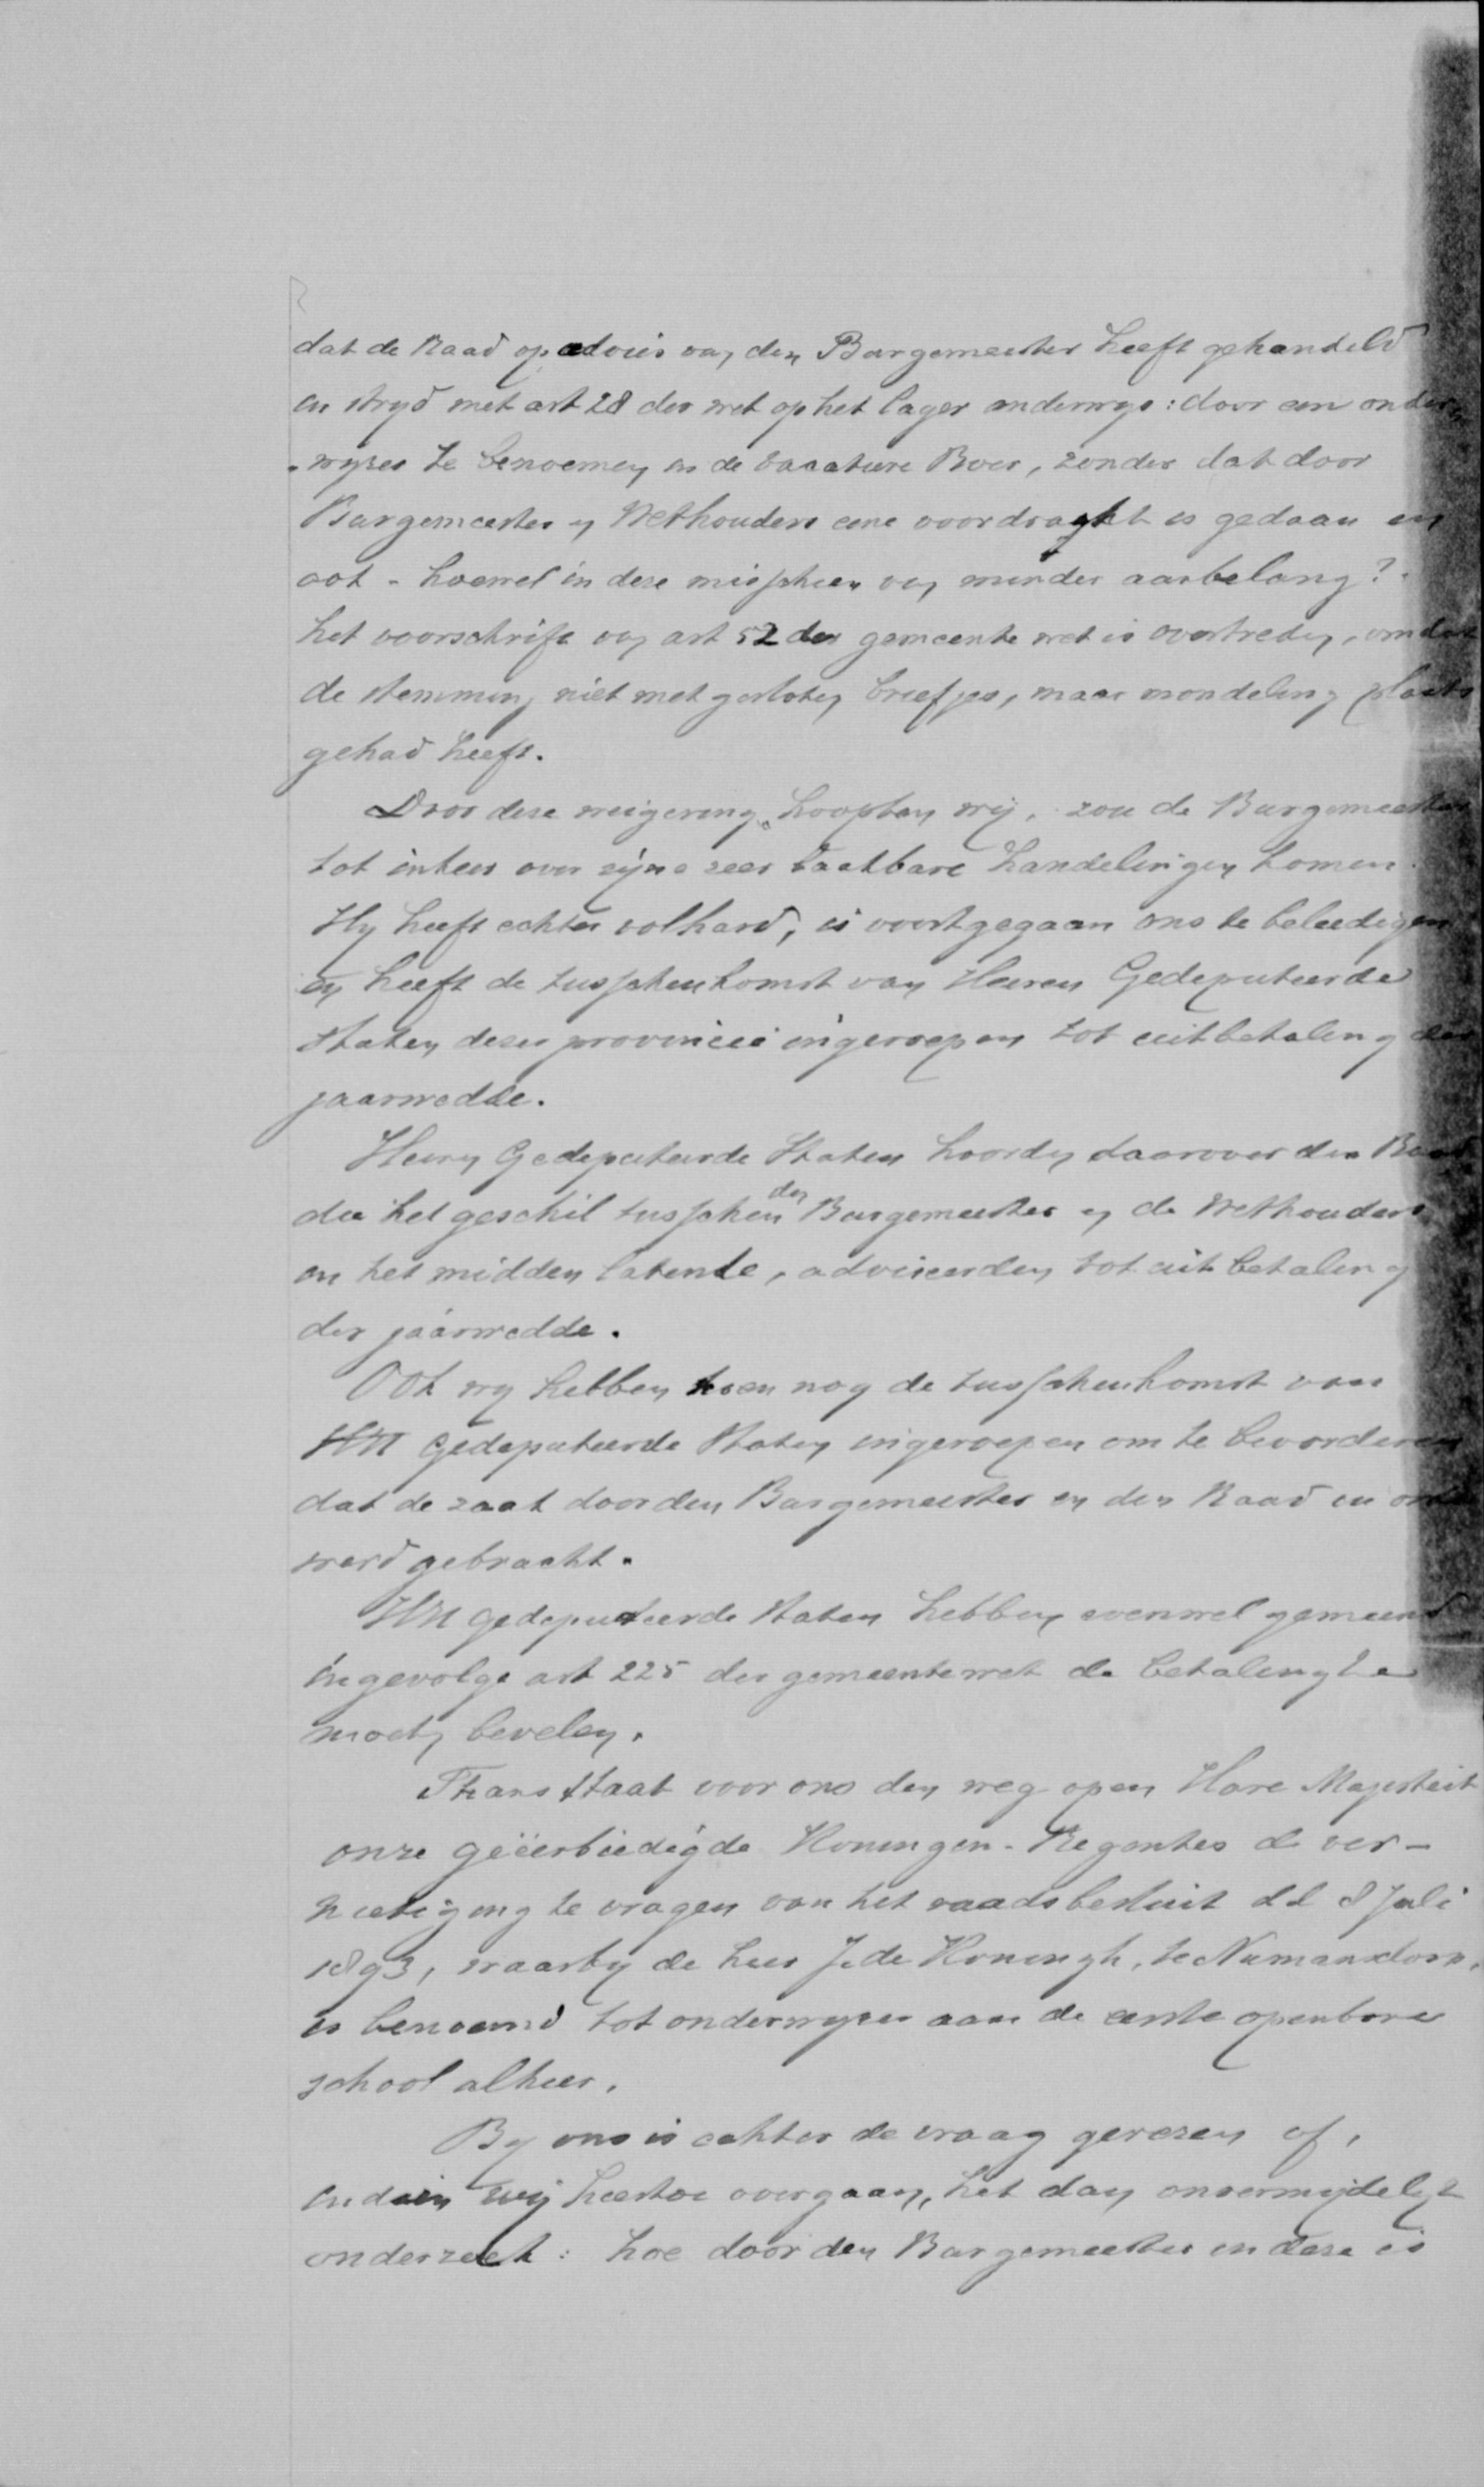 dat de Raad op advies van den Burgemeester heeft gehandeld
in stryd met art 28 der wet op het lager onderwys: door een onder
wyzer te benoemen in de vacature Boer, zonder dat door
Burgemeester en Wethouders eene voordragt is gedaan en
ook - hoewel in deze misschien van minder aanbelang?
het voorschrift van art 52 der gemeente wet is overtreden, omdat
de stemming niet met gesloten briefjes, maar mondeling plaats
gehad heeft.
Door deze weigering, hoopten wij, zou de Burgemeester
tot inkeer over zijne zeer laakbare handelingen komen.
Hy heeft echter volhard, is voortgegaan ons te beleedigen
en heeft de tusschenkomst van Heeren Gedeputeerde
Staten dezer provincie ingeroepen tot uitbetaling der
jaarwedde.
Heeren Gedeputeerde Staten hoorden daarover den Raad
die het geschil tusschen den Burgemeester en de Wethouders
in het midden latende, adviseerden tot uitbetaling
der jaarwedde.
Ook wy hebben toen nog de tusschenkomst van
HH Gedeputeerde Staten ingeroepen om te bevorderen
dat de zaak door den Burgemeester en den Raad in orde
werd gebracht.
HH Gedeputeerde Staten hebben evenwel gemeend
ingevolge art 225 der gemeentewet de betaling te
moeten bevelen.
Thans staat voor ons den weg open Hare Majesteit
onze geëerbiedigde Koningin-Regentes de ver-
nietiging te vragen van het raadsbesluit dd 8 Juli
1893, waarby de heer J. de Koningh, te Numansdorp,
is benoemd tot onderwyzer aan de eerste openbare
school alhier.
By ons is echter de vraag gerezen of,
indien wij hiertoe overgaan, het dan onvermijdelijk
onderzoek: hoe door den Burgemeester in deze is